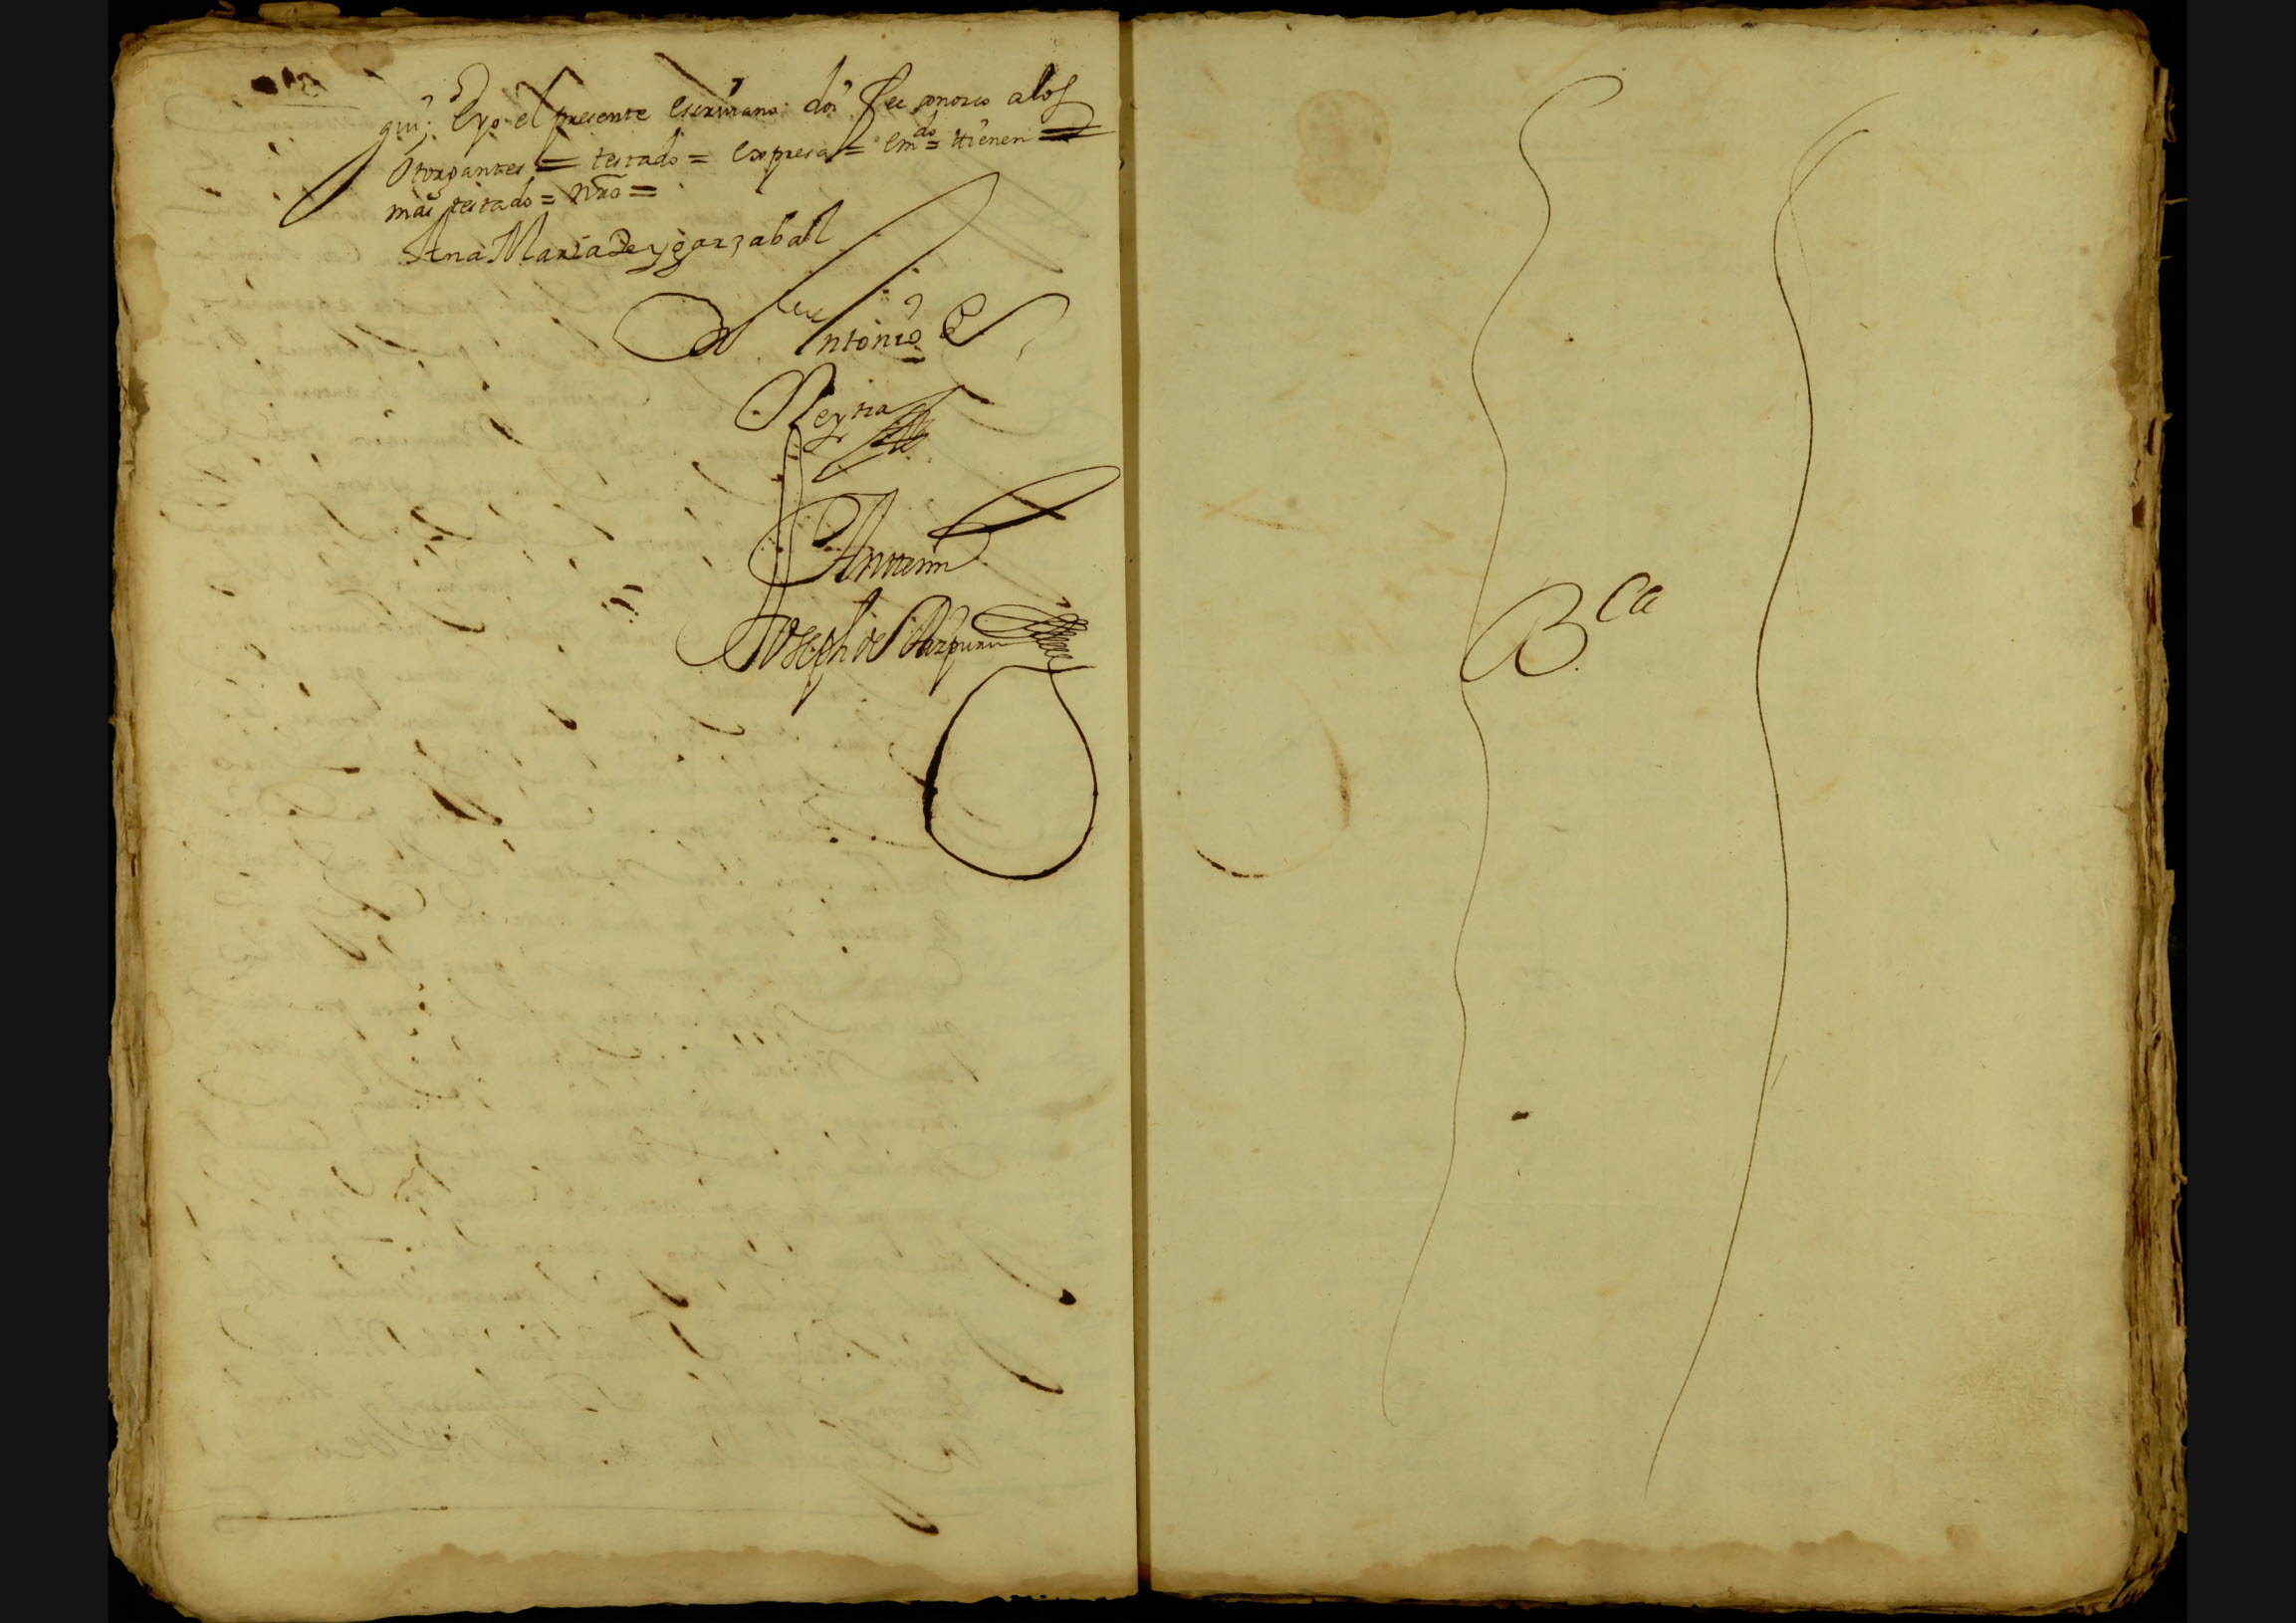 gui; Eyo el presente escrivano doi fee conosco alos
Otorgantes = testado = expresa = em.do = ttienen =
mas testado = Nro =
Ana Maria de ygarzabal
Antonio
Anttemi
Joseph de
B.ca